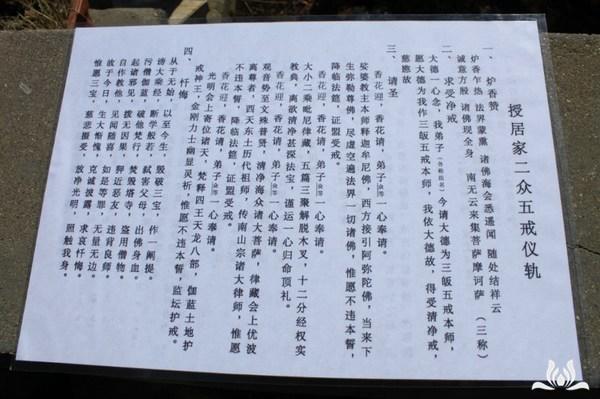 授居家二众五戒仪轨
一、炉香赞
炉香乍热 法界蒙熏 诸佛海会悉遥闻 随处结祥云
诚意方殷 诸佛现全身 南无云来集菩萨摩诃萨 (三称)
二、求受净戒
大德一心念，我弟子(各称姓名)今请大德为三皈五戒本师，
愿大德为我作三皈五戒本师，我依大德故，得受清净戒，
慈愍故
三、请圣
香花迎，香花请，弟子众等一心奉请。
娑婆教主本师释迦牟尼佛，西方接引阿弥陀佛，当来下
生弥勒尊佛，尽虚空遍法界一切诸佛，惟愿不违本誓，
降临法筵，证盟受戒。
香花迎，香花请，弟子众等一心奉请。
大小二乘毗尼律藏，五篇三聚解脱木叉，十二分经权实
教典，离欲清净甚深法宝，谨运一心归命顶礼。
香花迎，香花请，弟子众等一心奉请。
观音势至文殊普贤，清净海众诸大菩萨，律藏会上优波
离尊者，西天东土历代祖师，传南山宗诸大律师，惟愿
不违本誓，降临法筵，证盟受戒。
香花迎，香花请，弟子众等一心奉请。
光明会上寄位诸天，梵释四王天龙八部，伽蓝土地护
戒神王，金刚力士幽显灵祈，惟愿不违本誓，监坛护戒。
四、忏悔
从于无始，以至今生，毁破三宝，作一阐提。
谤大乘经，断学般若，弑害父母，出佛身血。
污僧伽蓝，破他梵行，焚毁塔寺，盗用僧物。
起诸邪见，拨无因果，狎近恶友，违背良师。
自作教他，见闻随喜，如是等罪，无量无边。
故于今日，生大惭愧，克诚披露，求哀忏悔。
惟愿三宝，慈悲摄受，放净光明，照触我身。